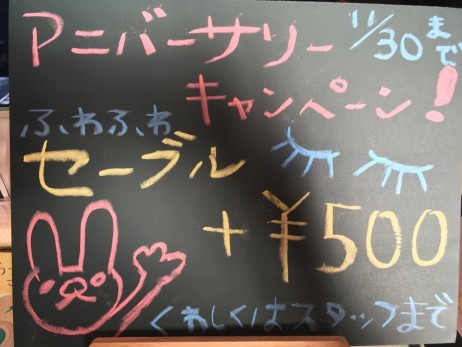 アニバーサリー 11/30まで
キャンペーン!
ふわふわ
セーブル
+¥500
くわしくはスタッフまで